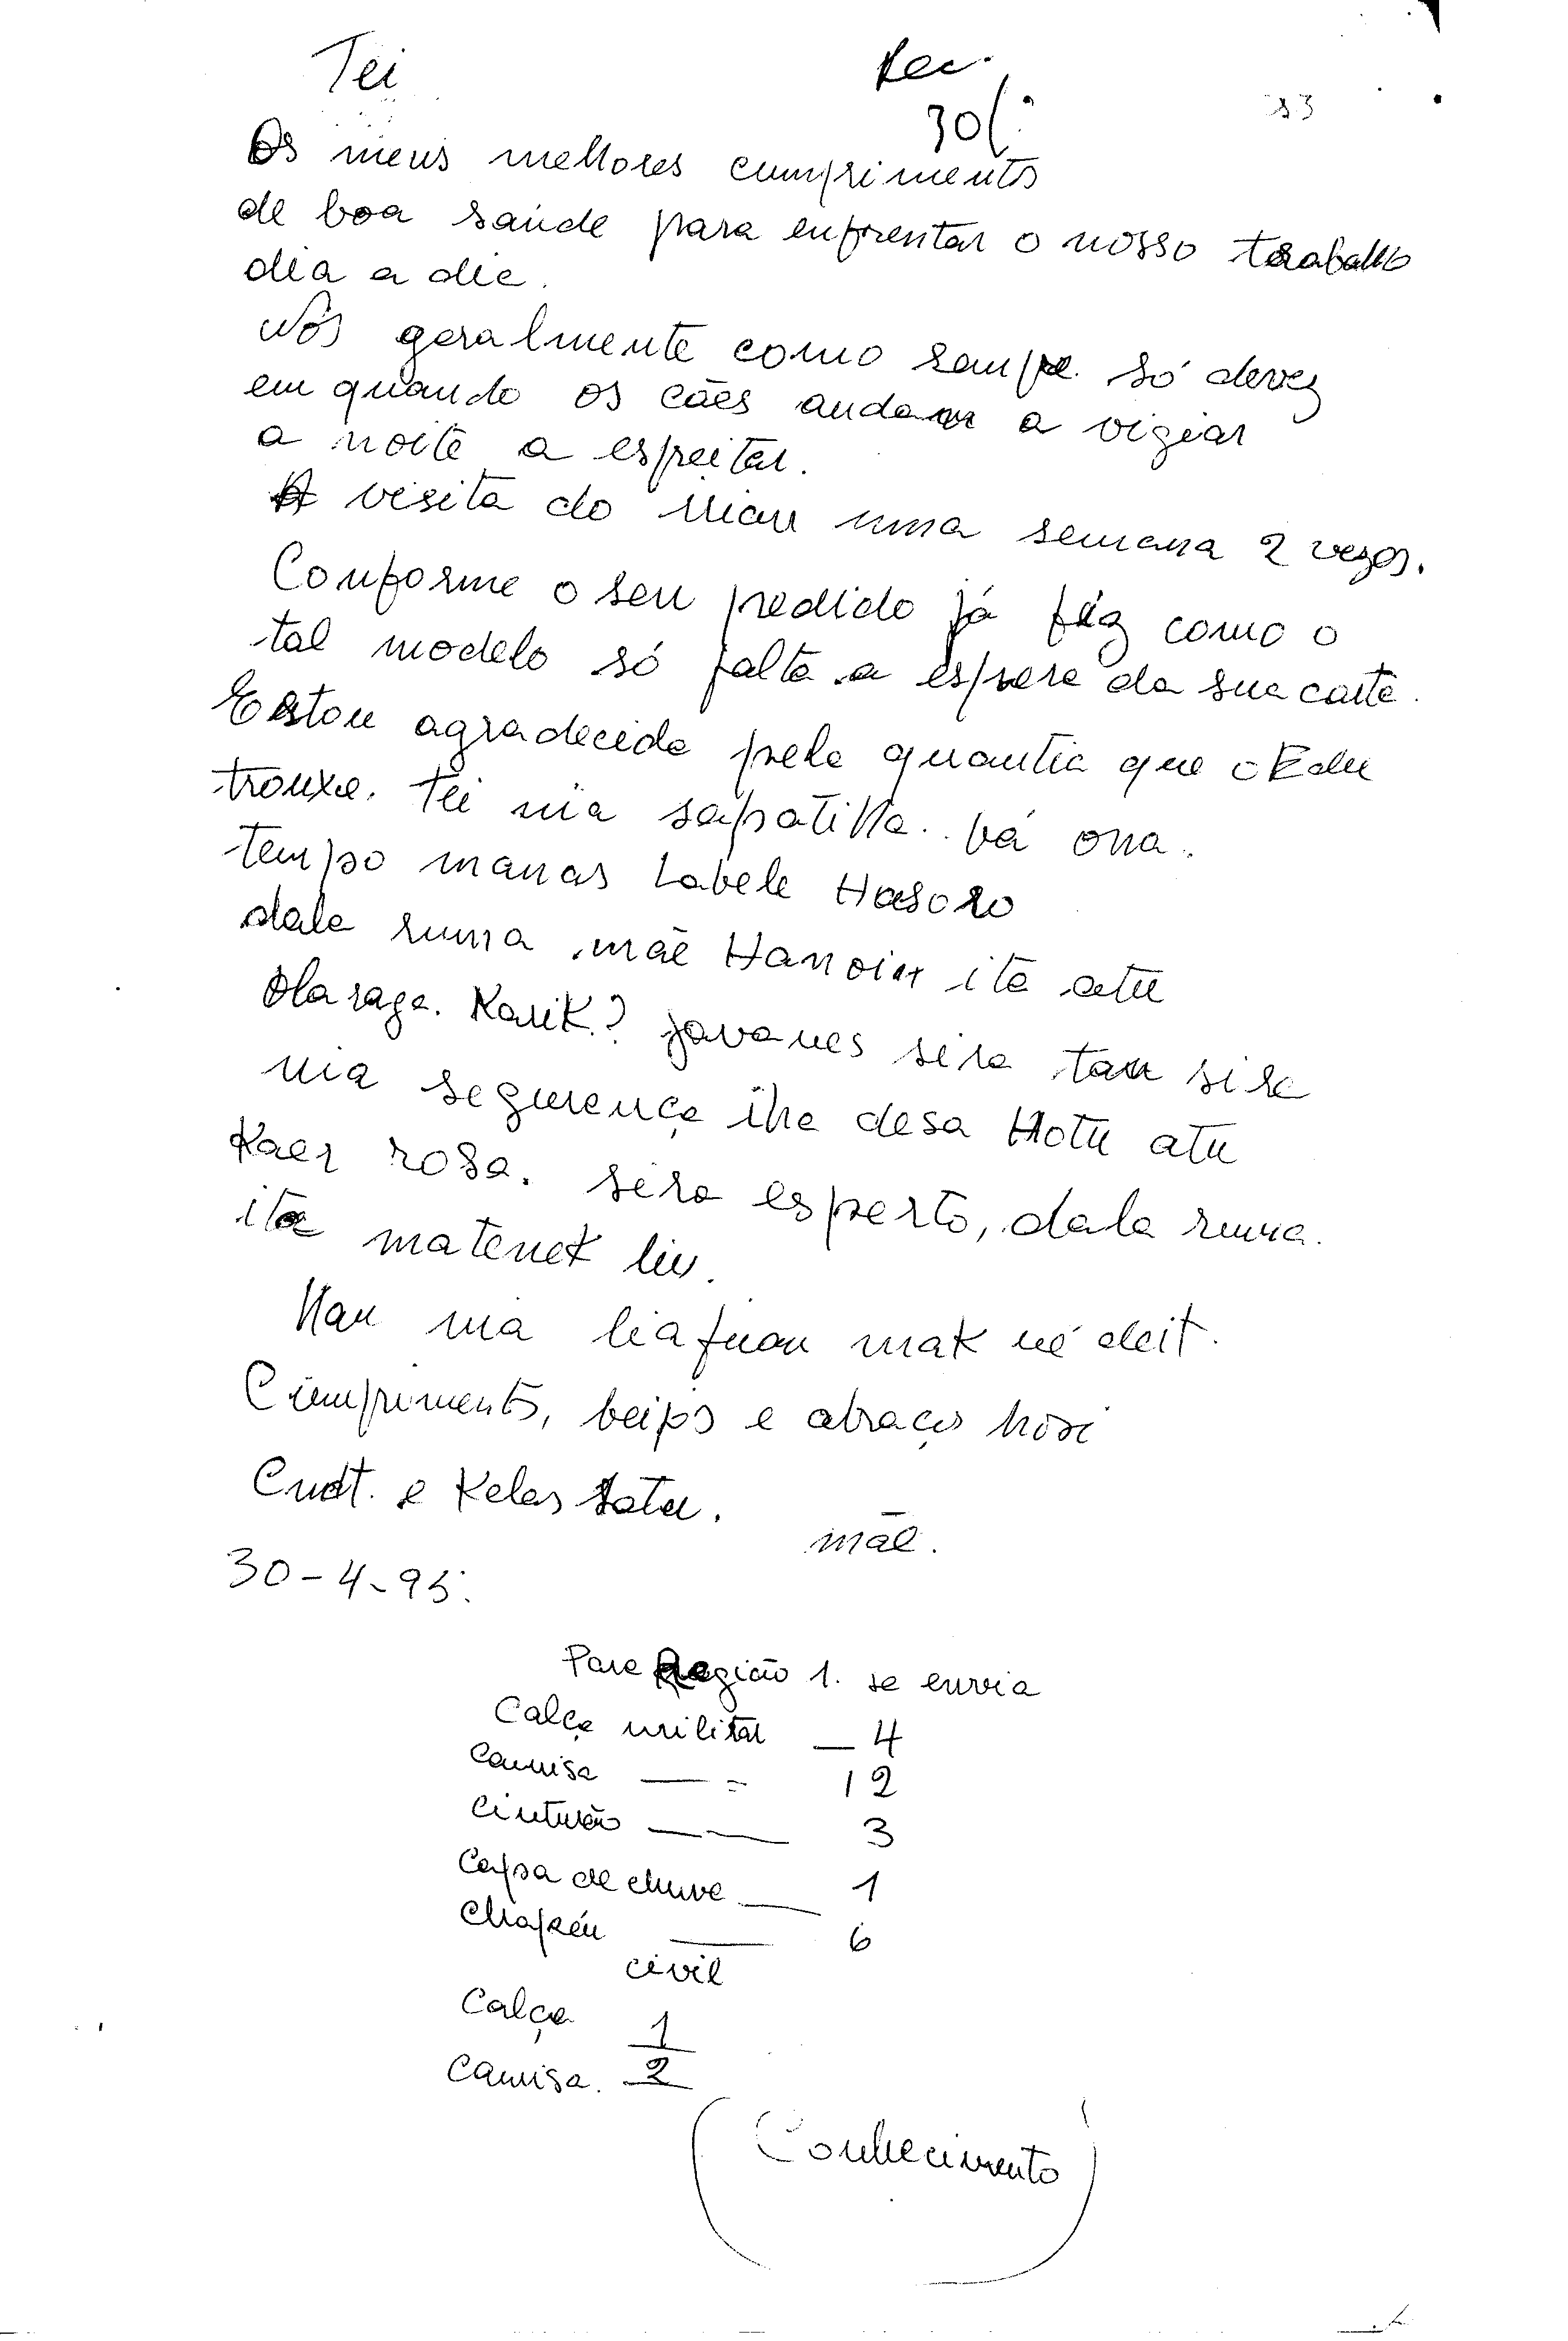 Tei
Rec.
30/
Os meus melhores cumprimentos
de boa saúde para enfrentar o nosso trabalho
dia a dia.
Nós geralmente como sempre só devez
em quando os cães andam a vigiar
a noite a espreitar.
A visita do Mau uma semana 2 vezes.
Conforme o seu pedido já fiz como o
tal modelo só falta a espera da sua carta.
Estou agradecida pela quantia que o Edu
trouxe. Tei nia sapatilha. bá ona.
tempo manas labele Hasoro
dala ruma mãe Hanoin ita atu
Harage. Karik? javanes sira tau sira
nia segurença iha desa Hotu atu
Kaer rosa. sira esperto, dala ruma.
ita matenek liu.
Hau nia liafuan mak né deit.
Cumprimentos, beijos e abraços hosi
Cmdt. e Kelas Satu.
mãe.
30-4-95.
Para Região 1. se envia
Calça militar — 4
Camisa — = 12
Cinturão — — 3
Capa de chuva — 1
Chapéu — 6
civil
Calça 1
Camisa. 2
(Conhecimento)